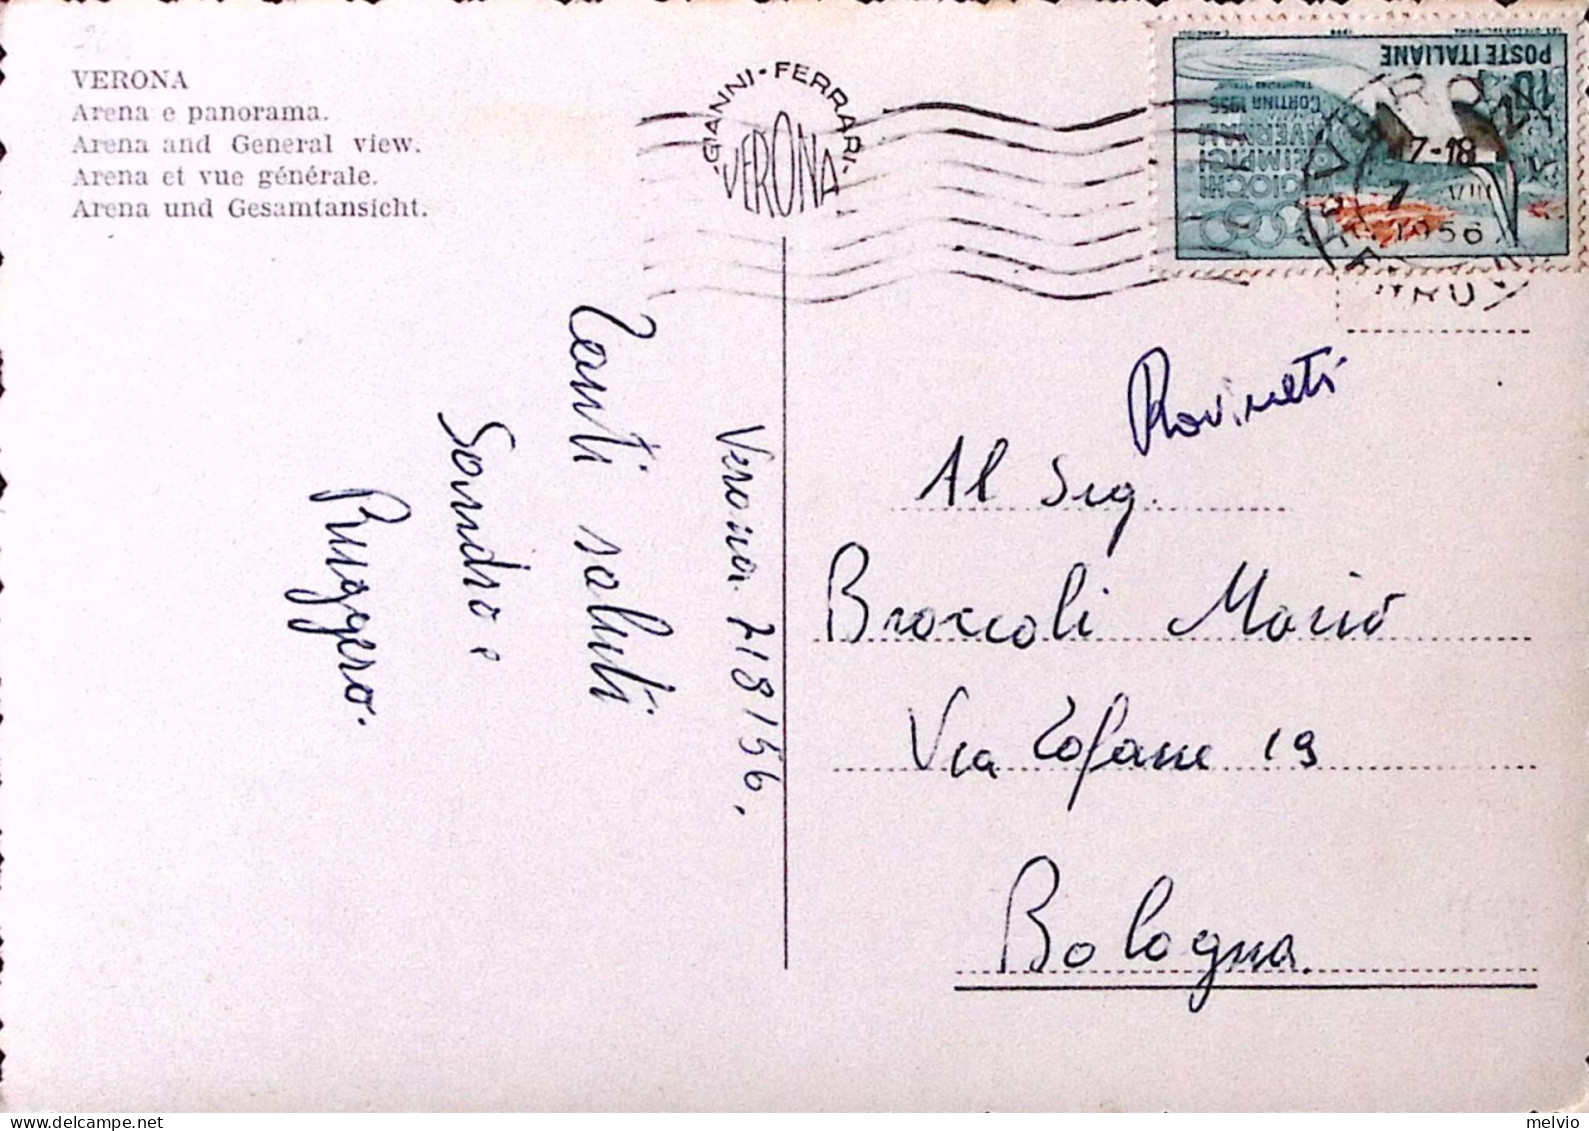 VERONA
Arena e panorama.
Arena and General view.
Arena et vue générale.
Arena und Gesamtansicht.
GIANNI-FERRARI
VERONA
POSTE ITALIANE
GIOCHI
OLIMPICI
INVERNALI
CORTINA 1956
7-18
7 VIII
1956
Verona 7/8/56.
Tanti saluti
Sandro e
Ruggero.
Rovineti
Al Sig.
Broccoli Mario
Via Tofane 19
Bologna.
melvio